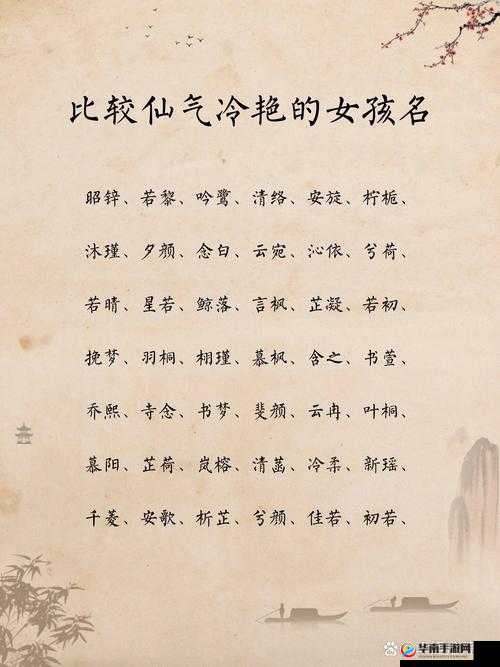 比较仙气冷艳的女孩名
昭锌、若黎、吟鹭、清络、安旋、柠栀、
沐瑾、夕颜、念白、云宛、沁依、兮荷、
若晴、星若、鲸落、言枫、芷凝、若初、
挽梦、羽桐、栩瑾、慕枫、含之、书萱、
乔熙、寺念、书梦、斐颜、云冉、叶桐、
慕阳、芷荷、岚榕、清菡、冷柔、新瑶、
千菱、安歌、析芷、兮颜、佳若、初若、
华南手游网